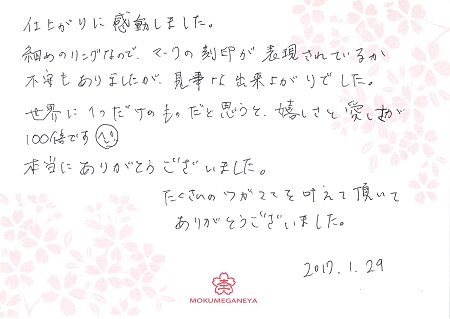 仕上がりに感動しました。
細めのリングなので、マークの刻印が表現されているか
不安もありましたが、見事な出来上がりでした。
世界に1つだけのものだと思うと、嬉しさと愛しさが
100倍です
本当にありがとうございました。
たくさんのワガママを叶えて頂いて
ありがとうございました。
2017.1.29
MOKUMEGANEYA